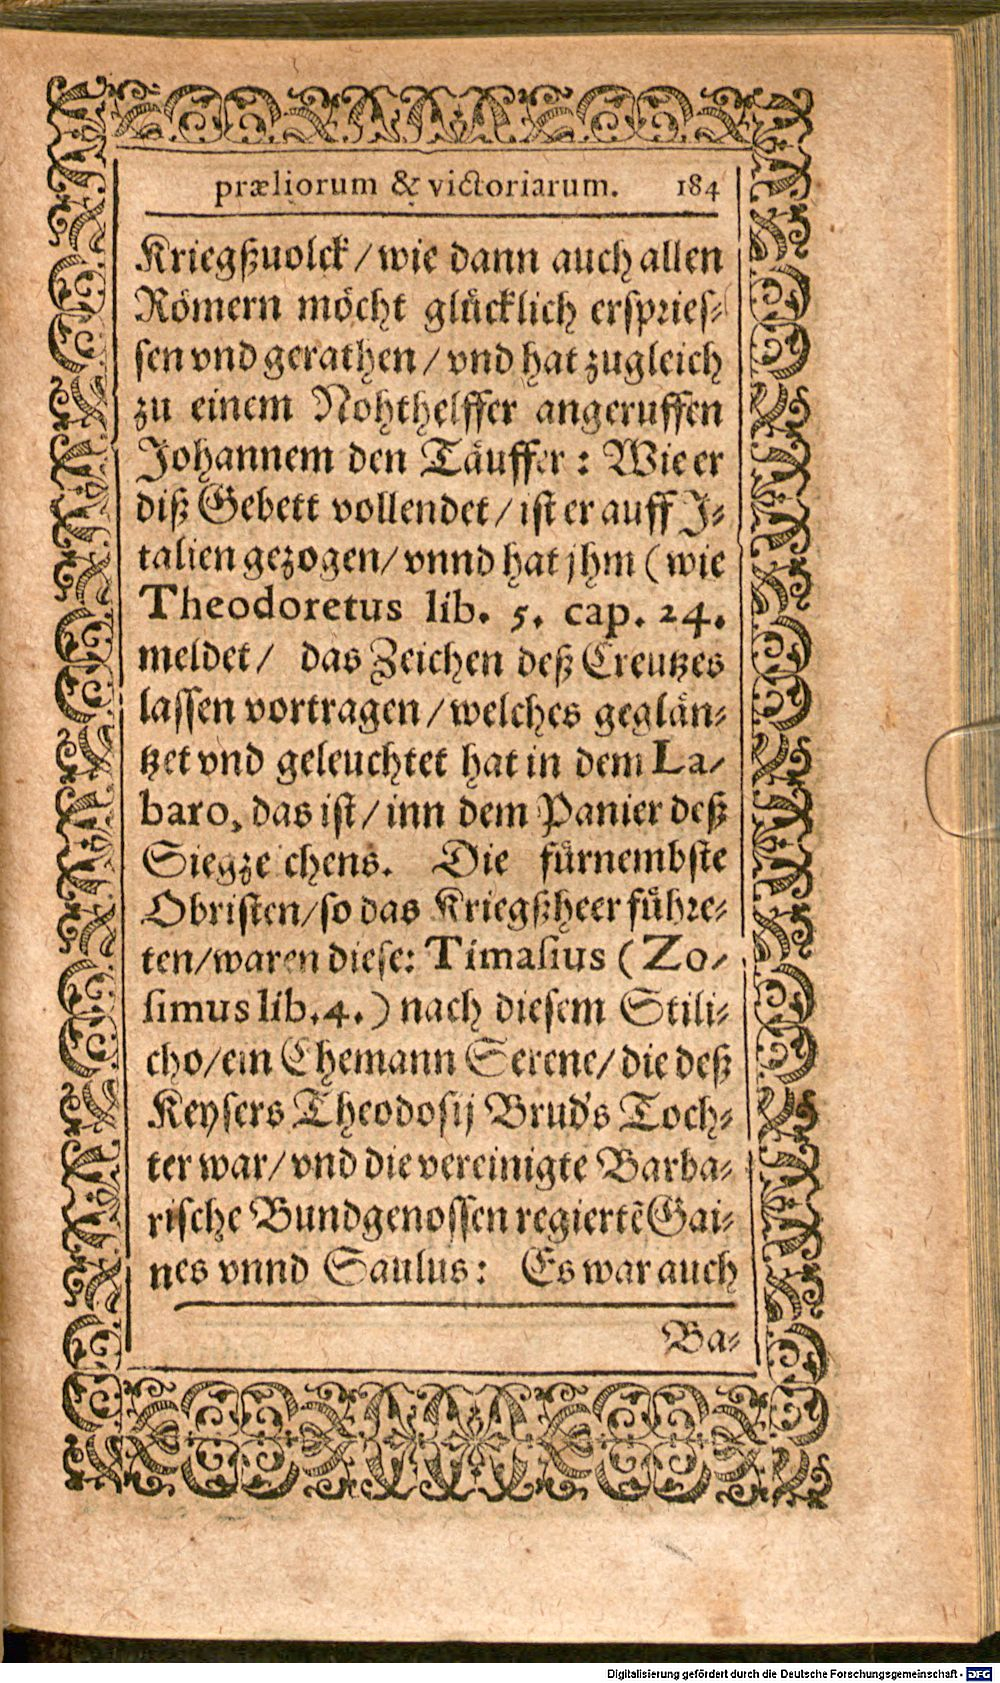 præliorum & victoriarum. 184
Kriegßuolck / wie dann auch allen
Römern möcht glücklich erspries-
sen vnd gerathen / vnd hat zugleich
zu einem Nohthelffer angeruffen
Johannem den Täuffer : Wie er
diß Gebett vollendet / ist er auff J-
talien gezogen / vnnd hat jhm ( wie
Theodoretus lib. 5. cap. 24.
meldet / das Zeichen deß Creutzes
lassen vortragen / welches geglän-
tzet vnd geleuchtet hat in dem La-
baro, das ist / inn dem Panier deß
Siegze chens. Die fürnembste
Obristen / so das Kriegßheer führe-
ten / waren diese: Timasius ( Zo-
simus lib. 4. ) nach diesem Stili-
cho / ein Ehemann Serene / die deß
Keysers Theodosij Brud's Toch-
ter war / vnd die vereinigte Barba-
rische Bundgenossen regiertē Gai-
nes vnnd Saulus : Es war auch
Ba-
Digitalisierung gefördert durch die Deutsche Forschungsgemeinschaft - DFG